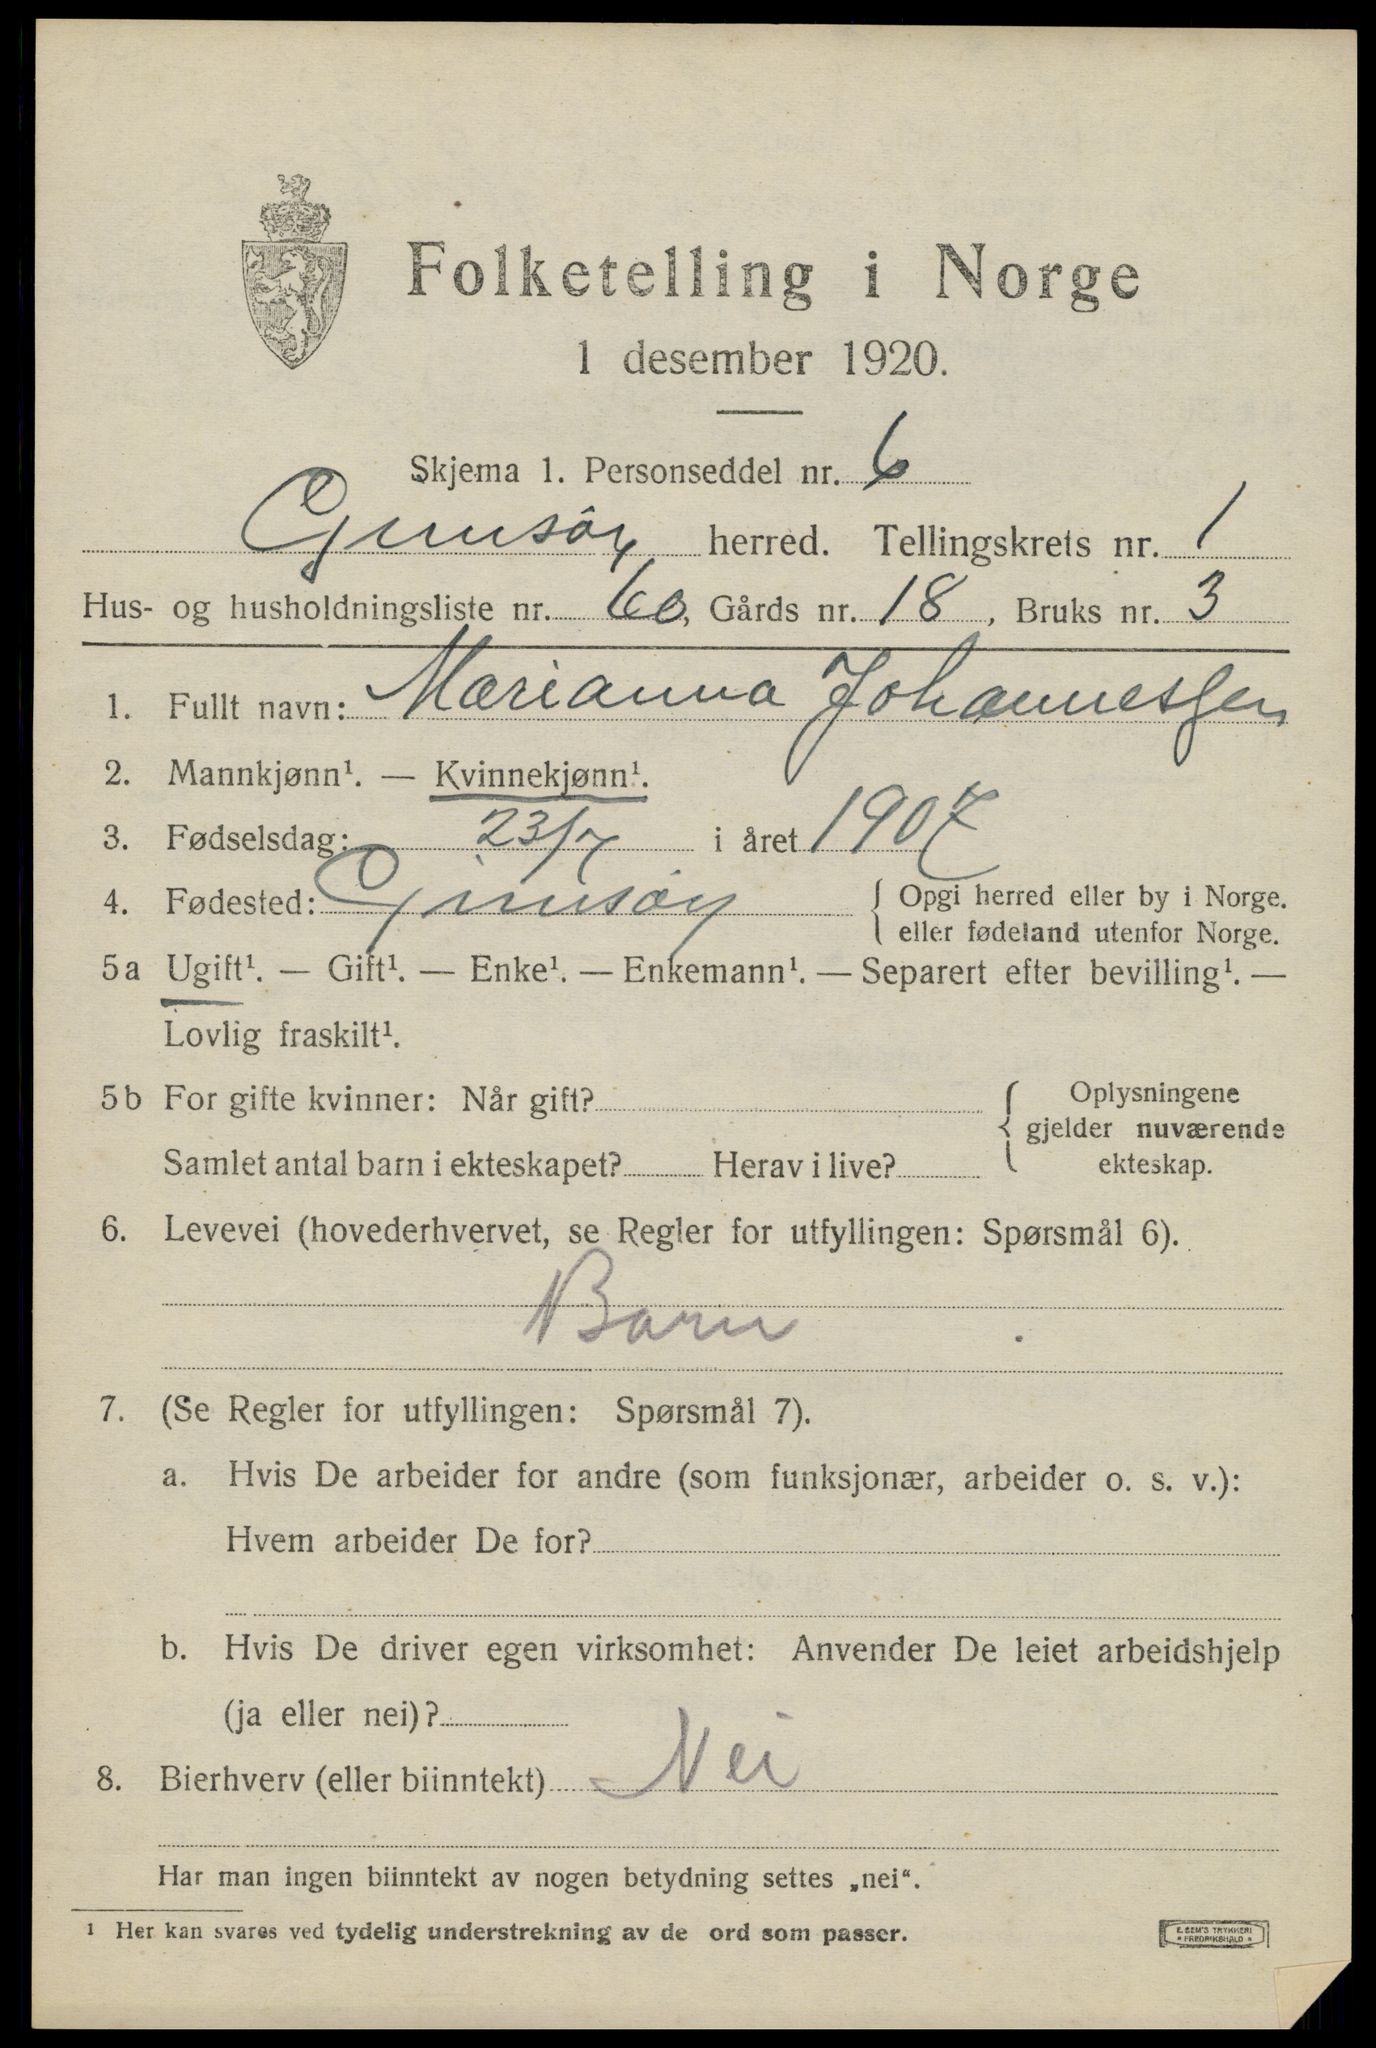 Folketelling i Norge
1 desember 1920.
Skjema 1. Personseddel nr. 6
Gimsöy herred. Tellingskrets nr. 1
Hus- og husholdningsliste nr. 60, Gårds nr. 18, Bruks nr. 3
1. Fullt navn: Marianna Johannessen
2. Mannkjønn¹. — Kvinnekjønn¹.
3. Fødselsdag: 23/7 i året 1907
4. Fødested: Gimsöy { Opgi herred eller by i Norge.
eller fødeland utenfor Norge.
5a Ugift¹. — Gift¹. — Enke¹. — Enkemann¹. — Separert efter bevilling¹. —
Lovlig fraskilt¹.
5b For gifte kvinner: Når gift? { Oplysningene
gjelder nuværende
Samlet antal barn i ekteskapet? Herav i live? ekteskap.
6. Levevei (hovederhvervet, se Regler for utfyllingen: Spørsmål 6).
Barn
7. (Se Regler for utfyllingen: Spørsmål 7).
a. Hvis De arbeider for andre (som funksjonær, arbeider o. s. v.):
Hvem arbeider De for?
b. Hvis De driver egen virksomhet: Anvender De leiet arbeidshjelp
(ja eller nei)?
8. Bierhverv (eller biinntekt) Nei
Har man ingen biinntekt av nogen betydning settes „nei“.
¹ Her kan svares ved tydelig understrekning av de ord som passer.
E. SEM'S TRYKKERI
* FREDRIKSHALD *